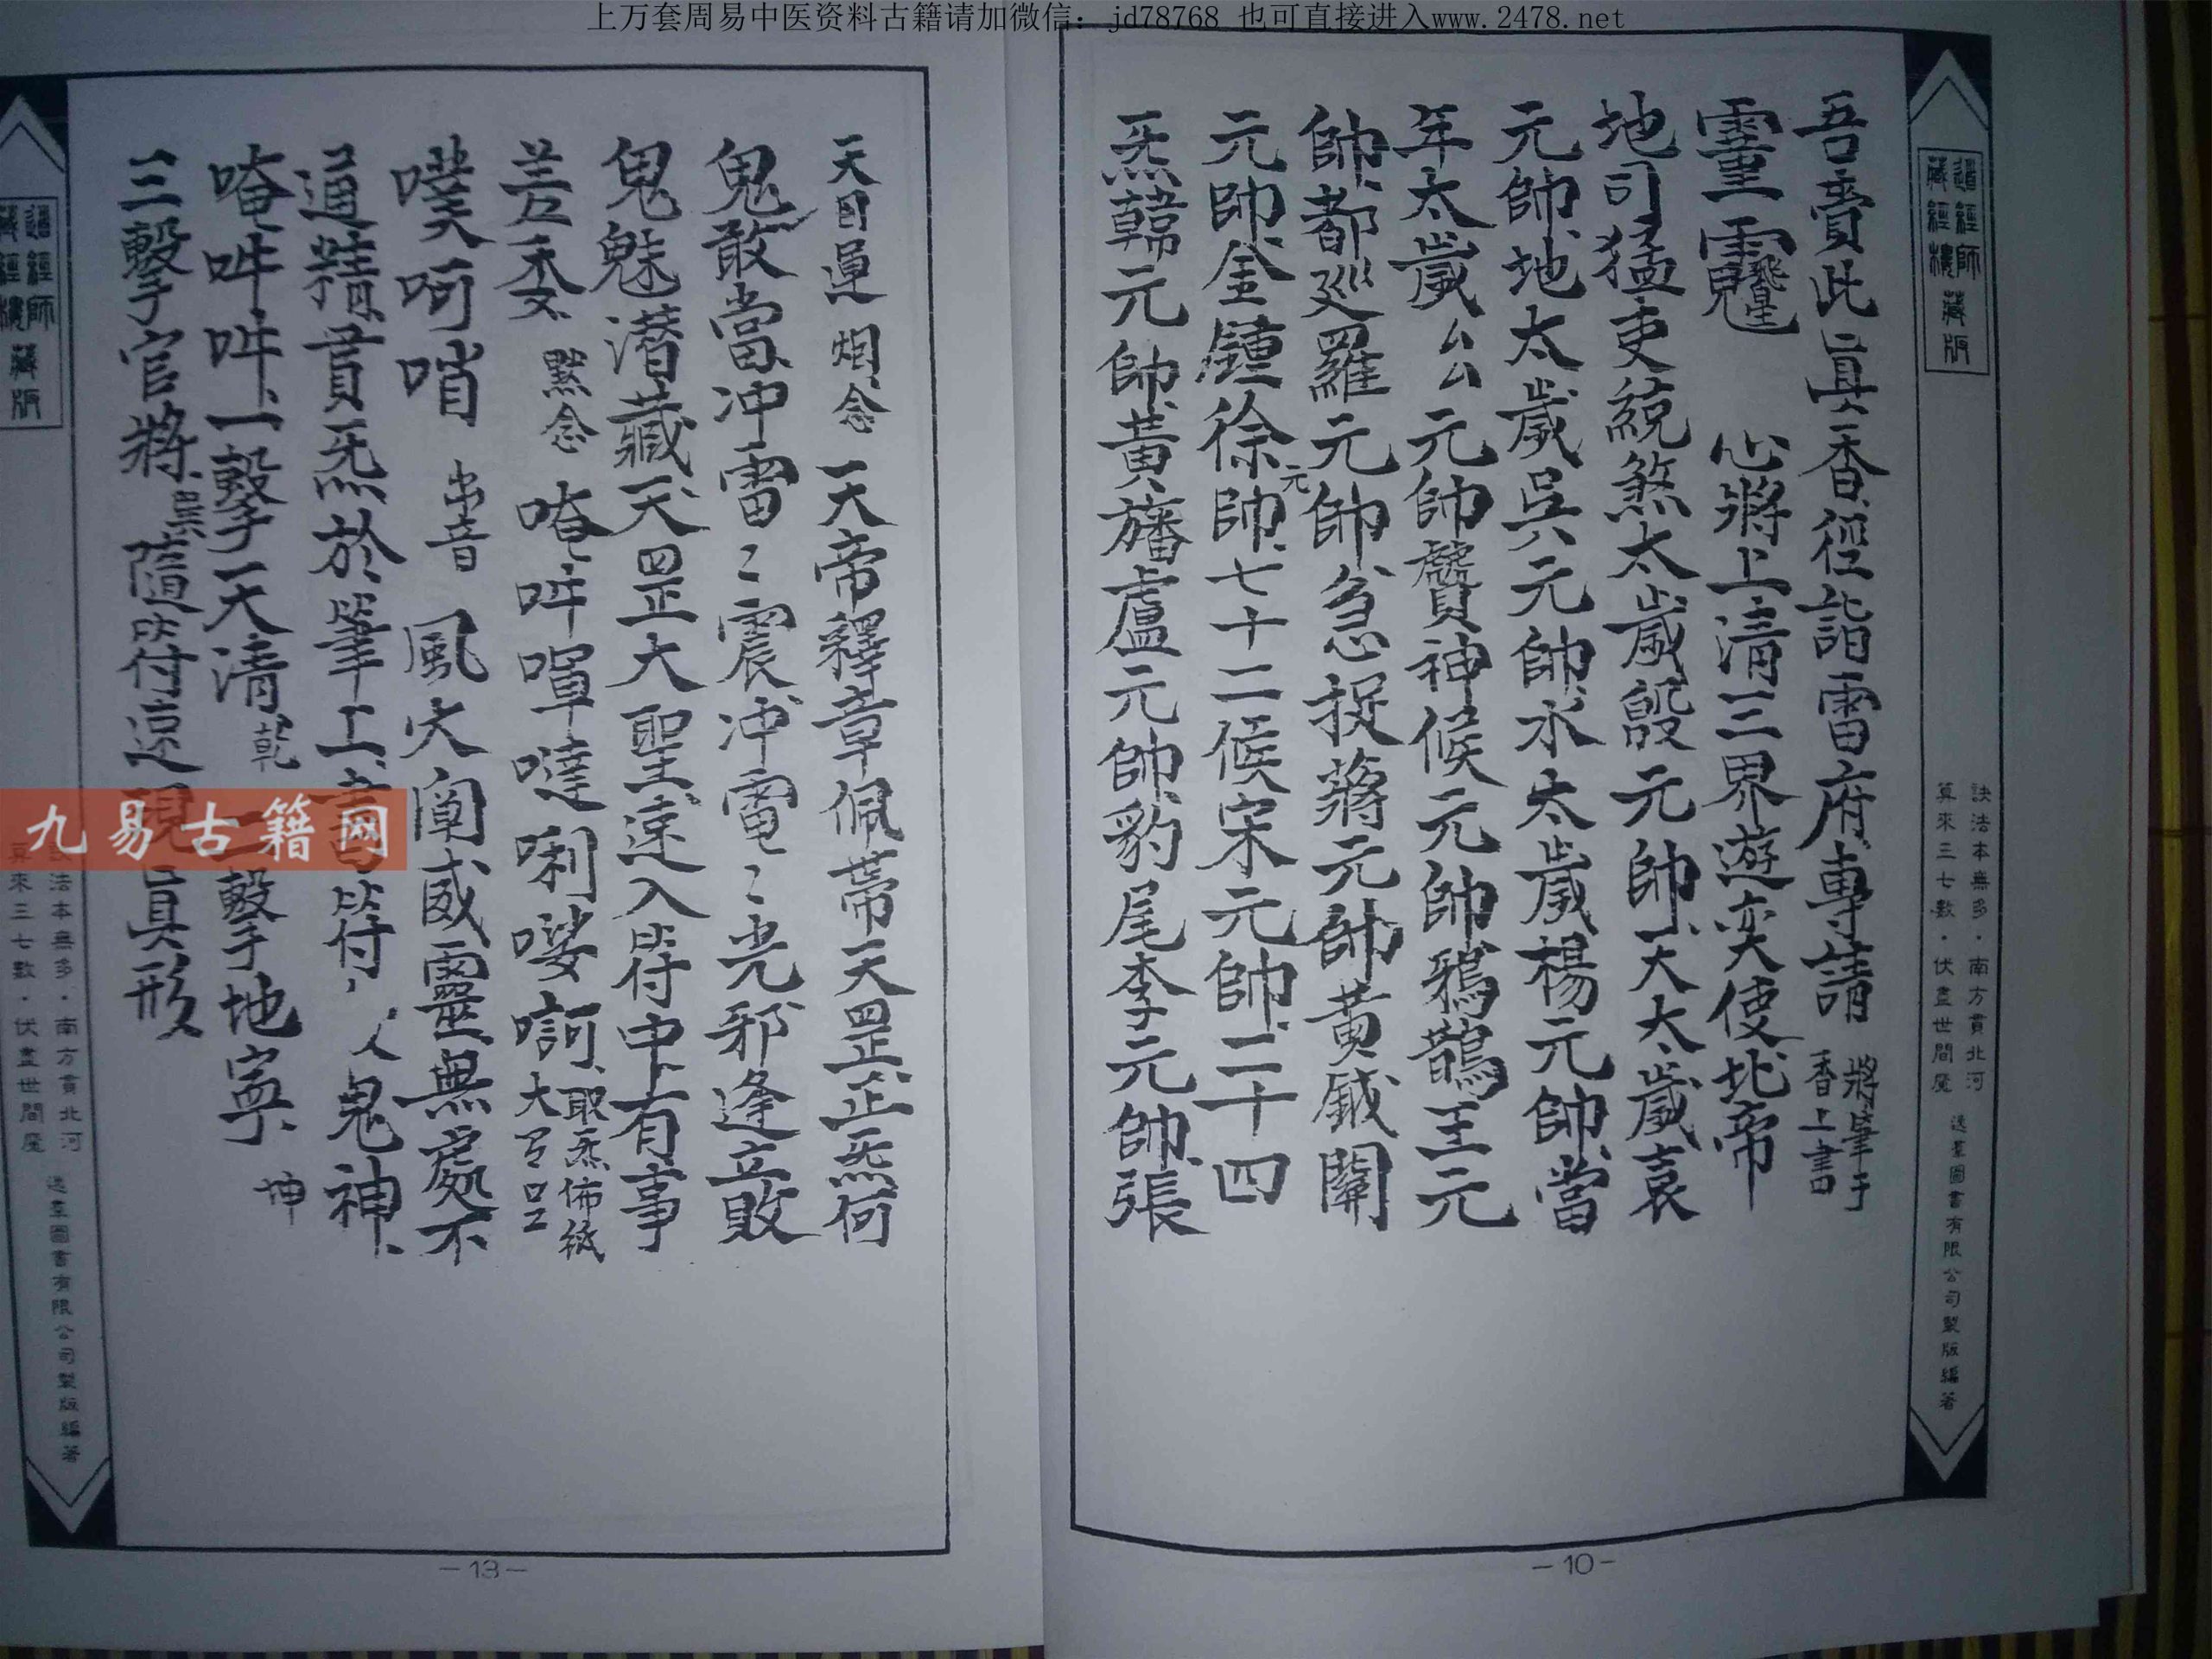 上万套周易中医资料古籍请加微信：jd78768 也可直接进入www.2478.net
道經師
藏經樓
藏版
訣法本無多·南方貫北河
算來三七數·伏盡世間魔
逸羣圖書有限公司製版編著
吾賫此真香徑詣雷府專請 將筆于香上書
心將上清三界遊奕使北帝
地司猛吏統煞太歲殷元帥天太歲袁
元帥地太歲吳元帥水太歲楊元帥當
年太歲厶厶元帥鬢神候元帥鴉鵲王元
帥都廵羅元帥急捉蔣元帥黃鉞關
元帥金鍾徐元帥七十二候宋元帥二十四
炁韓元帥黃旛盧元帥豹尾李元帥張
-10-
天目運烟念 天帝釋章佩蒂天罡正炁何
鬼敢當冲雷〻震冲電〻光邪逢立敗
鬼魅潜藏天罡大聖逺入符中上有事
差委 默念 唵吽㖶噠唎娑訶 取炁佈紙
噗呵哨 串音 風火闡威靈無處不
通精貫炁於筆上書符 人鬼神
唵吽吽一擊天清 乾 二擊地寧 坤
三擊官將 巽 隨符逺現真形
-13-
道經師
藏經樓
藏版
訣法本無多·南方貫北河
算來三七數·伏盡世間魔
逸羣圖書有限公司製版編著
九易古籍网